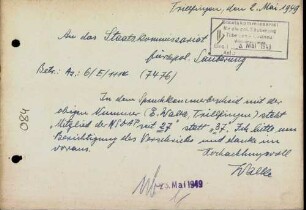 Trillfingen, den 2. Mai 1949
An das Staatskommissariat
für polit. Säuberung
Betr: Az: 6/E/11116 (7476)
In dem Spruchkammerbescheid mit der
obigen Nummer (E. Walke, Trillfingen) steht
"Mitglied der NSDAP seit 27" statt "37". Ich bitte um
Berichtigung des Versehens und danke im
voraus.
Hochachtungsvoll
Walke
Mai 1949
084